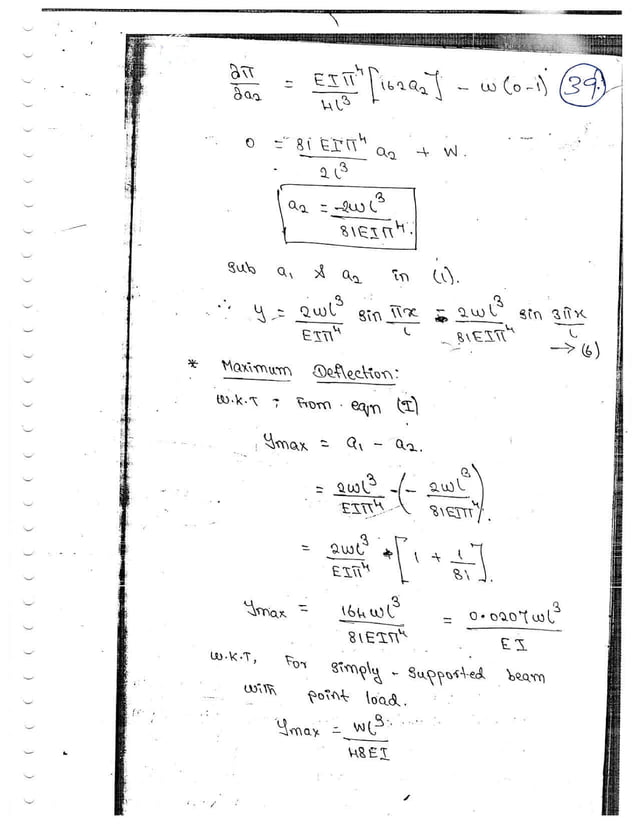 ∂π/∂a2 = EIπ⁴/4l³ [162a2] - w(0-1) 39.
0 = 81EIπ⁴/2l³ a2 + W.
a2 = -2wl³/81EIπ⁴.
sub a1 & a2 in (1).
∴ y = 2wl³/EIπ⁴ sin πx/l - 2wl³/81EIπ⁴ sin 3πx/l → (6)
* Maximum Deflection:
W.K.T, From eqn (I)
Ymax = a1 - a2.
= 2wl³/EIπ⁴ - (- 2wl³/81EIπ⁴).
= 2wl³/EIπ⁴ [1 + 1/81].
Ymax = 164wl³/81EIπ⁴ = 0.0207wl³/EI
W.K.T, For simply-supported beam
with point load.
Ymax = Wl³/48EI